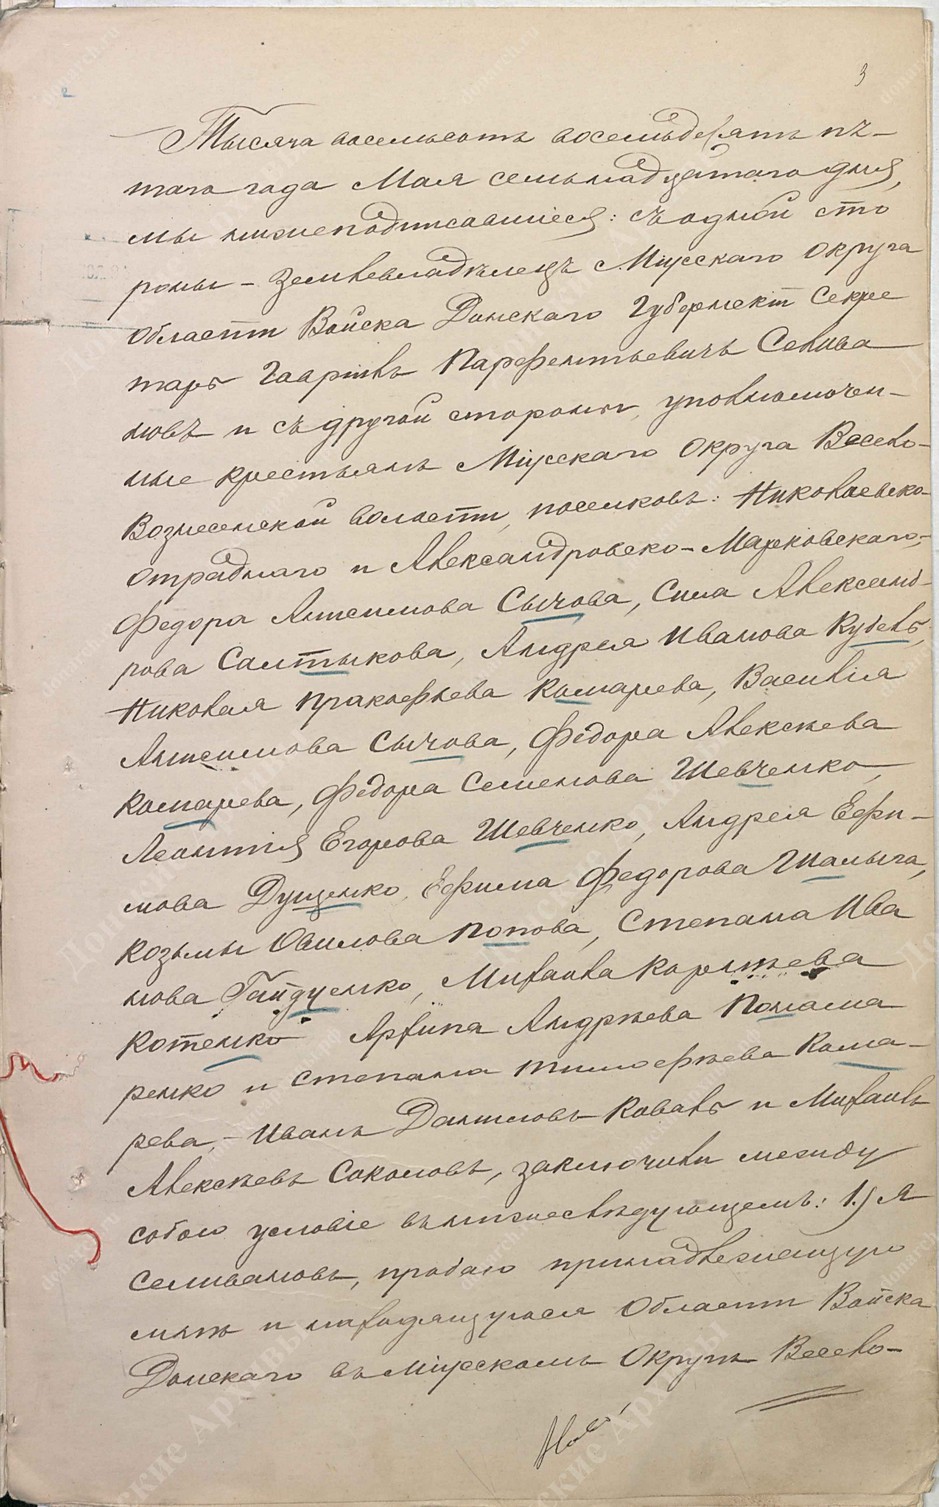 3
Тысяча восемьсотъ восемьдесятъ пя-
таго года Мая семьнадцатаго дня,
мы нижеподписавшіеся: съ одной сто
роны – Землевладѣлецъ Міусскаго Округа
Области Войска Донскаго Губернскій Секре
тарь Гавріилъ Парфентьевичъ Селива
новъ и съ другой стороны, уполномочен-
ные крестьянъ Міусскаго Округа Весело-
Вознесенской волости, поселковъ: Николаевско-
Отраднаго и Александровско-Марковскаго,
Федора Антимова Сычова, Сила Александ-
рова Салтыкова, Андрея Иванова Кубель,
Николая Прокофьева Комарева, Василія
Антимова Сычова, Федора Алексѣева
Комарева, Федора Семенова Шевченко,
Леонтія Егорова Шевченко, Андрея Ефи-
мова Дущенко, Ефима Федорова Шалыга,
Козьмы Попова, Степана Ива
нова Гайдученко, Михаила Корнѣева
Котенко Архипа Андрѣева Понама
ренко и Степана Тимофѣева Кома-
рева, – Иванъ Даниловъ Коваль и Михаилъ
Алексѣевъ Соколовъ, заключили между
собою условіе въ нижеслѣдующемъ: 1.) Я
Селивановъ, продаю принадлежащую
мнѣ и находящуюся Области Войска
Донскаго въ Міусскомъ Округѣ Весело-